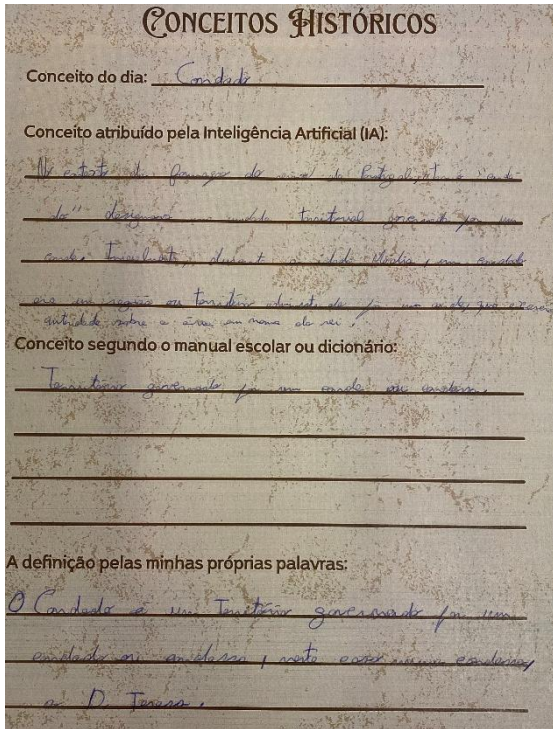 CONCEITOS HISTÓRICOS
Conceito do dia: Condado
Conceito atribuído pela Inteligência Artificial (IA):
No contexto da formação do de Portugal, "conda
do" designava unidade territorial governada por um
conde. durante a idade Média, um condado
era um região ou território por um conde, que exercia
autoridade sobre a área em nome do rei.
Conceito segundo o manual escolar ou dicionário:
Território governado por um conde ou condessa.
A definição pelas minhas próprias palavras:
O Condado é um Território governado por um
ou condessa, neste caso uma condessa,
a D. Teresa.